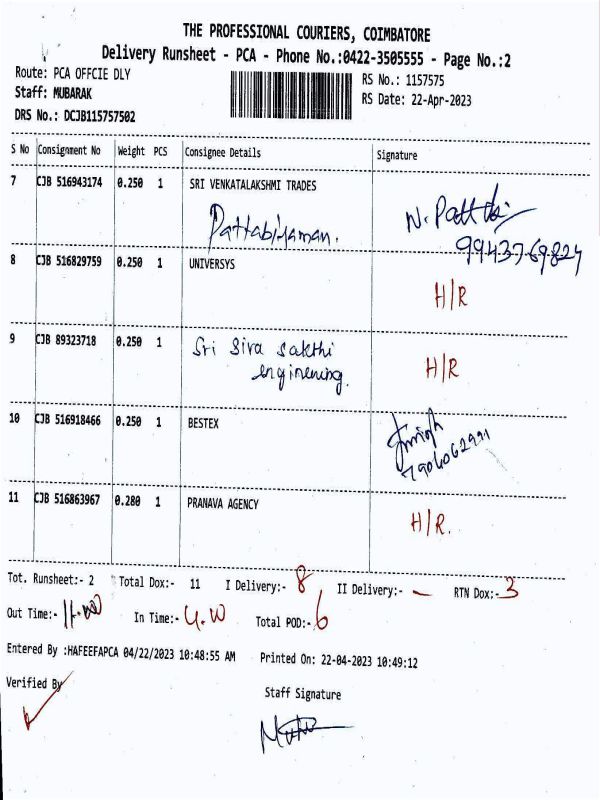 THE PROFESSIONAL COURIERS, COIMBATORE
Delivery Runsheet - PCA - Phone No.:0422-3505555 - Page No.:2
Route: PCA OFFCIE DLY
RS No.: 1157575
Staff: MUBARAK
RS Date: 22-Apr-2023
DRS No.: DCJB115757502
S No Consignment No Weight PCS Consignee Details Signature
7 CJB 516943174 0.250 1 SRI VENKATALAKSHMI TRADES
Pattabiraman. N. Pattabi
9943769824
8 CJB 516829759 0.250 1 UNIVERSYS
H/R
9 CJB 89323718 0.250 1 Sri Siva sakthi
enginening. H/R
10 CJB 516918466 0.250 1 BESTEX
7904062991
11 CJB 516863967 0.280 1 PRANAVA AGENCY
H/R.
Tot. Runsheet:- 2 Total Dox:- 11 I Delivery:- 8 II Delivery:- - RTN Dox:- 3
Out Time:- 11.00 In Time:- 4.10 Total POD:- 6
Entered By :HAFEEFAPCA 04/22/2023 10:48:55 AM Printed On: 22-04-2023 10:49:12
Verified By
Staff Signature